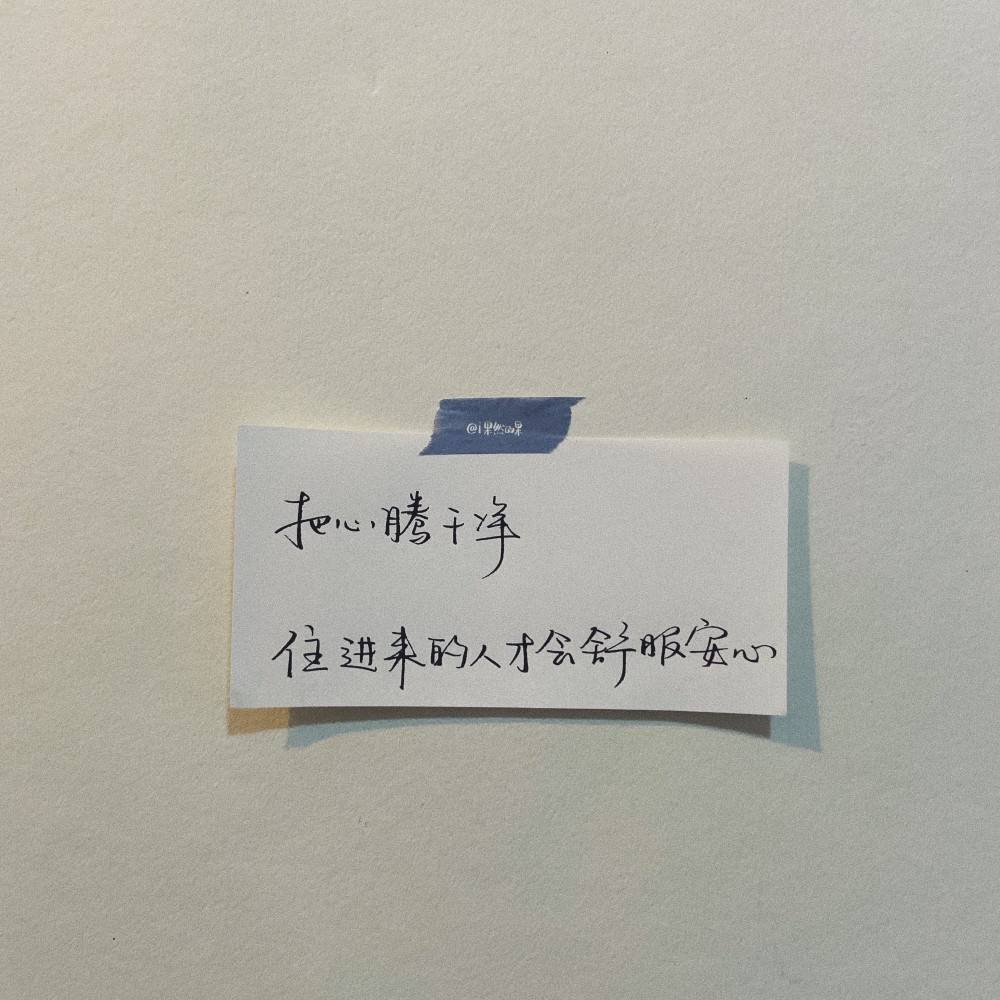 @i果然的果
把心腾干净
住进来的人才会舒服安心